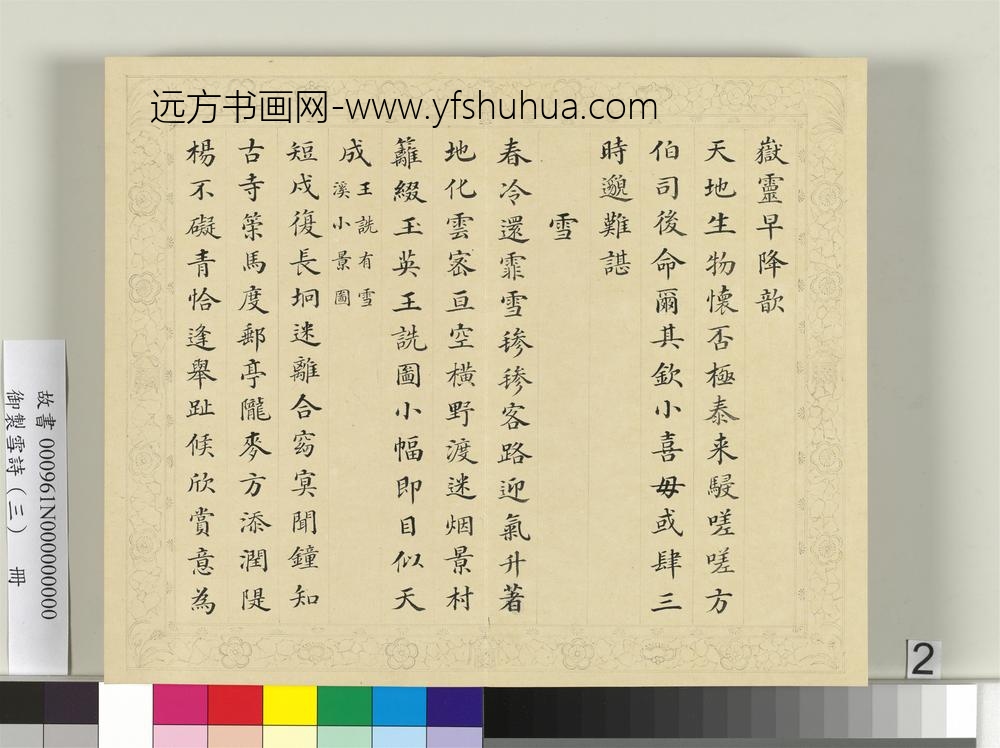 远方书画网-www.yfshuhua.com
嶽靈早降歆
天地生物懷否極泰来駸嗟嗟方
伯司後命爾其欽小喜毋或肆三
時邈難諶
雪
春冷還霏雪毵毵客路迎氣升著
地化雲宻亘空橫野渡迷烟景村
籬綴玉英王詵圖小幅即目似天
成
王詵有雪
溪小景圖
短戍復長坰迷離合窈冥聞鐘知
古寺策馬度郵亭隴麥方添潤隄
楊不礙青恰逢舉趾候欣賞意為
故書 000961N000000000
御製雪詩（三） 冊
2